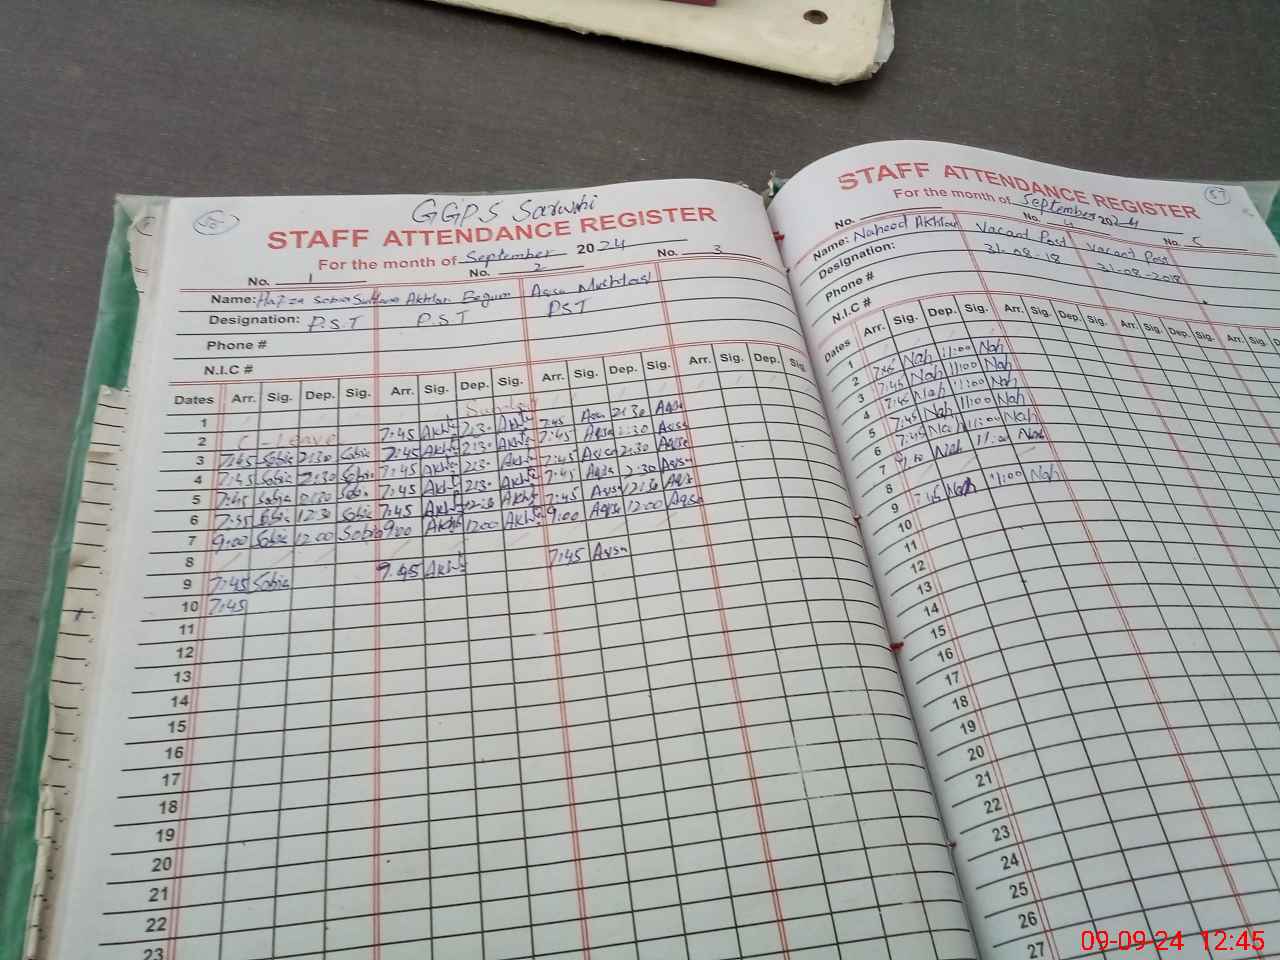 56
GGPS Sarwahi
STAFF ATTENDANCE REGISTER
For the month of September 2024
No. 1 No. 2 No. 3
Name: Hafiza Sobia Sultana Akhtar Begum Aqsa Mushtaq
Designation: P.S.T P.S.T PST
Phone #
N.I.C #
Dates Arr. Sig. Dep. Sig. Arr. Sig. Dep. Sig. Arr. Sig. Dep. Sig. Arr. Sig. Dep. Sig.
1 Sunday
2 C - Leave 7:45 Akhtr 2:30 Akhtr 7:45 Aqsa 2:30 Aqsa
3 7:45 Sobia 2:30 Sobia 7:45 Akhtr 2:30 Akhtr 7:45 Aqsa 2:30 Aqsa
4 7:45 Sobia 2:30 Sobia 7:45 Akhtr 2:30 Akhtr 7:45 Aqsa 2:30 Aqsa
5 7:45 Sobia Sobia 7:45 Akhtr Akhtr 7:45 Aqsa 2:30 Aqsa
6 Sobia 12:30 Sobia 7:45 Akhtr 12:30 Akhtr 7:45 Aqsa 12:30 Aqsa
7 9:00 Sobia 12:00 Sobia 9:00 Akhtr 12:00 Akhtr 9:00 Aqsa 12:00 Aqsa
8
9 7:45 Sobia 7:45 Akhtr 7:45 Aqsa
10 7:45
11
12
13
14
15
16
17
18
19
20
21
22
23
57
STAFF ATTENDANCE REGISTER
For the month of September 2024
No. No. 4 No. 5
Name: Naheed Akhtar Vacant Post Vacant Post
Designation: 31-08-18 31-08-2018
Phone #
N.I.C #
Dates Arr. Sig. Dep. Sig. Arr. Sig. Dep. Sig. Arr. Sig. Dep. Sig. Arr. Sig.
1
2 7:45 Nah 11:00 Nah
3 7:45 Nah 11:00 Nah
4 7:45 Nah 11:00 Nah
5 7:45 Nah 11:00 Nah
6 7:45 Nah 11:00 Nah
7 Nah 11:00 Nah
8
9 7:45 Nah 11:00 Nah
10
11
12
13
14
15
16
17
18
19
20
21
22
23
24
25
26
27
09-09-24 12:45